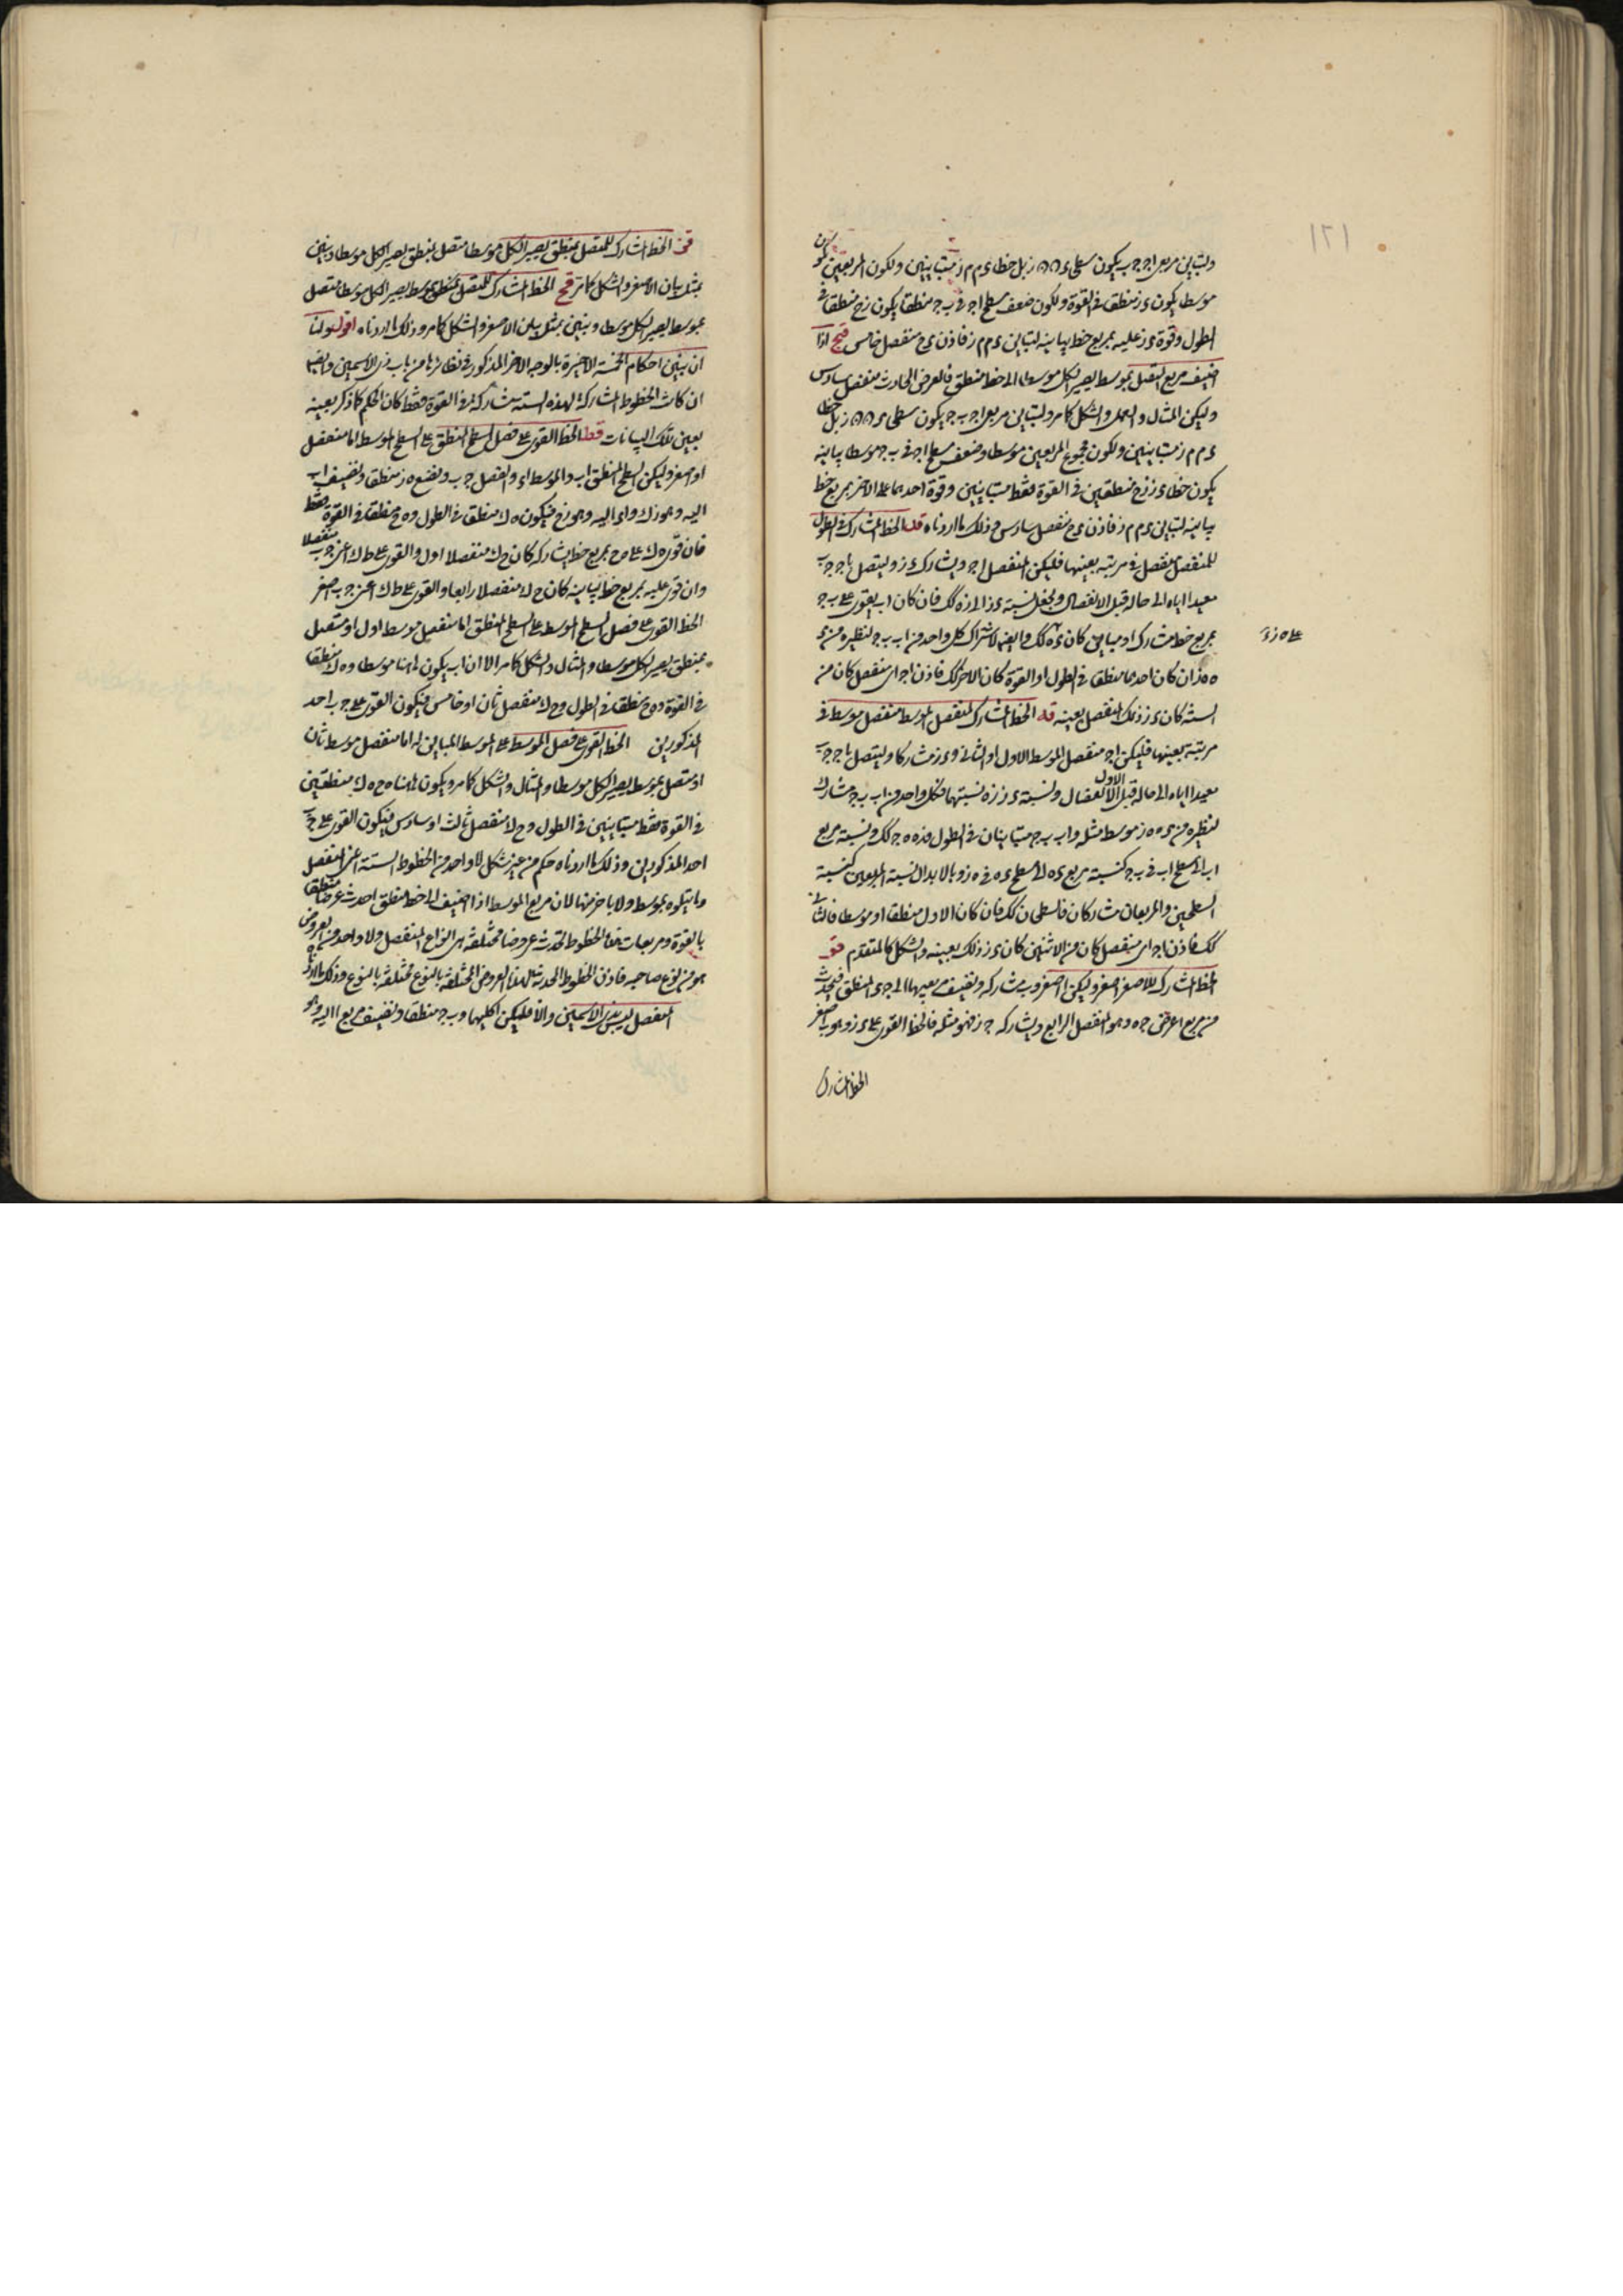 ١٢١
ولتباين مربعى اج ج ب يكون سطحى بل خطا ء م م ز متباينين ولكون المربعين
موسطا يكون ء ز منطقا فى القوة ولكون ضعف سطح اج فى ب ج منطقا يكون ز ح منطقا فى
الطول وقوة ء ز عليه بمربع خط يباينه لتباين ء م م ز فاذن ء ح منفصل خامس قج اذا
اضيف مربع المتصل بموسط يصير الكل موسطا الى خط منطق فالعرض الحادث منفصل سادس
وليكن المثال والعمل والشكل كما مر ولتباين مربعى اج ب ج يكون سطحى بل خطا
ء م م ز متباينين ولكون مجموع المربعين موسطا وضعف سطح اج فى ب ج موسطا يباينه
يكون خطا ء ز ز ح منطقين فى القوة فقط متباينين وقوة احدهما على الاخر بمربع خط
يباينه لتباين ء م م ز فاذن ء ح منفصل سادس وذلك ما اردناه قد الخط المشارك فى الطول
للمنفصل منفصل فى مرتبته بعينها فليكن المنفصل اج ويشاركه ء ز وليتصل باج ج ب
معيدا اياه الى حاله قبل الانفصال ونجعل نسبة ء ز الى ز ه كك فان كان اب يقوى على ب ج
بمربع خط مشارك او مباين كان ء ه كك وايضا لاشتراك كل واحد من اب ب ج لنظيره من ء
على ه ز ء
ه ه ز ان كان احدهما منطقا فى الطول او القوة كان الاخر كك فاذن اج اى منفصل كان من
الستة كان ء ز ذلك المنفصل بعينه قه الخط المشارك لمنفصل الموسط منفصل موسط فى
مرتبته بعينها فليكن اج منفصل الموسط الاول او الثانى و ء ز مشاركا وليتصل باج ج ب
معيدا اياه الى حاله قبل الانفصال ونسبة ء ز ز ه نسبتهما فكل واحد من اب ب ج مشارك
لنظيره من ء ه ه ز موسط مثله واب ب ج متباينان فى الطول فء ه ه ج كك ونسبة مربع
اب الى سطح اب فى ب ج كنسبة مربع ء ه الى سطح ء ه فى ه ز وبالابدال نسبة المربعين كنسبة
السطحين والمربعان مشاركان فالسطحان كك فان كان الاول منطقا او موسطا فالثانى
كك فاذن اج اى منفصل كان من الاثنين كان ء ز ذلك بعينه والشكل كالمتقدم قو
الخط المشارك للاصغر اصغر وليكن ا اصغر وب مشاركه ونضيف مربعيهما الى ج ء المنطق فيحدث
من مربع ا عرض ج ه وهو المنفصل الرابع ويشاركه ج ز فهو مثله فالخط القوى على ء ز وهو ب اصغر
الخط المشارك
قز الخط المشارك للمتصل بمنطق يصير الكل موسطا متصل بمنطق يصير الكل موسطا ونبين
بمثل بيان الاصغر والشكل كما مر قح الخط المشارك للمتصل بموسط يصير الكل موسطا متصل
بموسط يصير الكل موسطا ونبين بمثل بيان الاصغر والشكل كما مر وذلك ما اردناه اقول ولنا
ان نبين احكام الخمسة الاخيرة بالوجه الاخر المذكور فى نظائرها من باب ذى الاسمين وايضا
ان كانت الخطوط المشاركة لهذه الستة مشاركة فى القوة فقط كان الحكم كما ذكر بعينه
بعين تلك البيانات قط الخط القوى على فضل السطح المنطق على السطح الموسط اما منفصل
او اصغر وليكن السطح المنطق اب والموسط اء والفضل ج ب ونضع ه ز منطقا ونضيف اب
اليه وهو ز ك واء اليه وهو ز ح فيكون ه ك منطقا فى الطول و ه ح منطقا فى القوة فقط
فان قوى ه ك على ه ح بمربع خط يشاركه كان ح ك منفصلا اول والقوى على ط ك اعنى ج ب منفصلا
وان قوى عليه بمربع خط يباينه كان ح ك منفصلا رابعا والقوى على ط ك اعنى ج ب اصغر
الخط القوى على فضل السطح الموسط على السطح المنطق اما منفصل موسط اول او متصل
بمنطق يصير الكل موسطا والمثال والشكل كما مر الا ان اب يكون هاهنا موسطا و ه ك منطقا
فى القوة و ه ح منطقا فى الطول و ح ك منفصل ثان او خامس فيكون القوى على ج ب احد
المذكورين الخط القوى على فضل الموسط على الموسط المباين له اما منفصل موسط ثان
او متصل بموسط يصير الكل موسطا والمثال والشكل كما مر ويكون هاهنا ه ح ه ك منطقين
فى القوة فقط متباينين فى الطول و ح ك منفصل ثالث او سادس فيكون القوى على ج ب
احد المذكورين وذلك ما اردناه حكم من غير شكل لا واحد من الخطوط الستة اعنى المنفصل
وما يتلوه بموسط ولا باخر منها لان مربع الموسط اذا اضيف الى خط منطق احدث عرضا منطقا
بالقوة ومربعات هذه الخطوط تحدث عروضا مختلفة هى انواع المنفصل ولا واحد من العروض
هو من نوع صاحبه فاذن الخطوط المحدثة لهذه العروض المختلفة بالنوع مختلفة بالنوع وذلك ما اردناه
المنفصل ليس بذى الاسمين والا فليكن ا كليهما وب ج منطقا ونضيف مربع ا اليه وهو